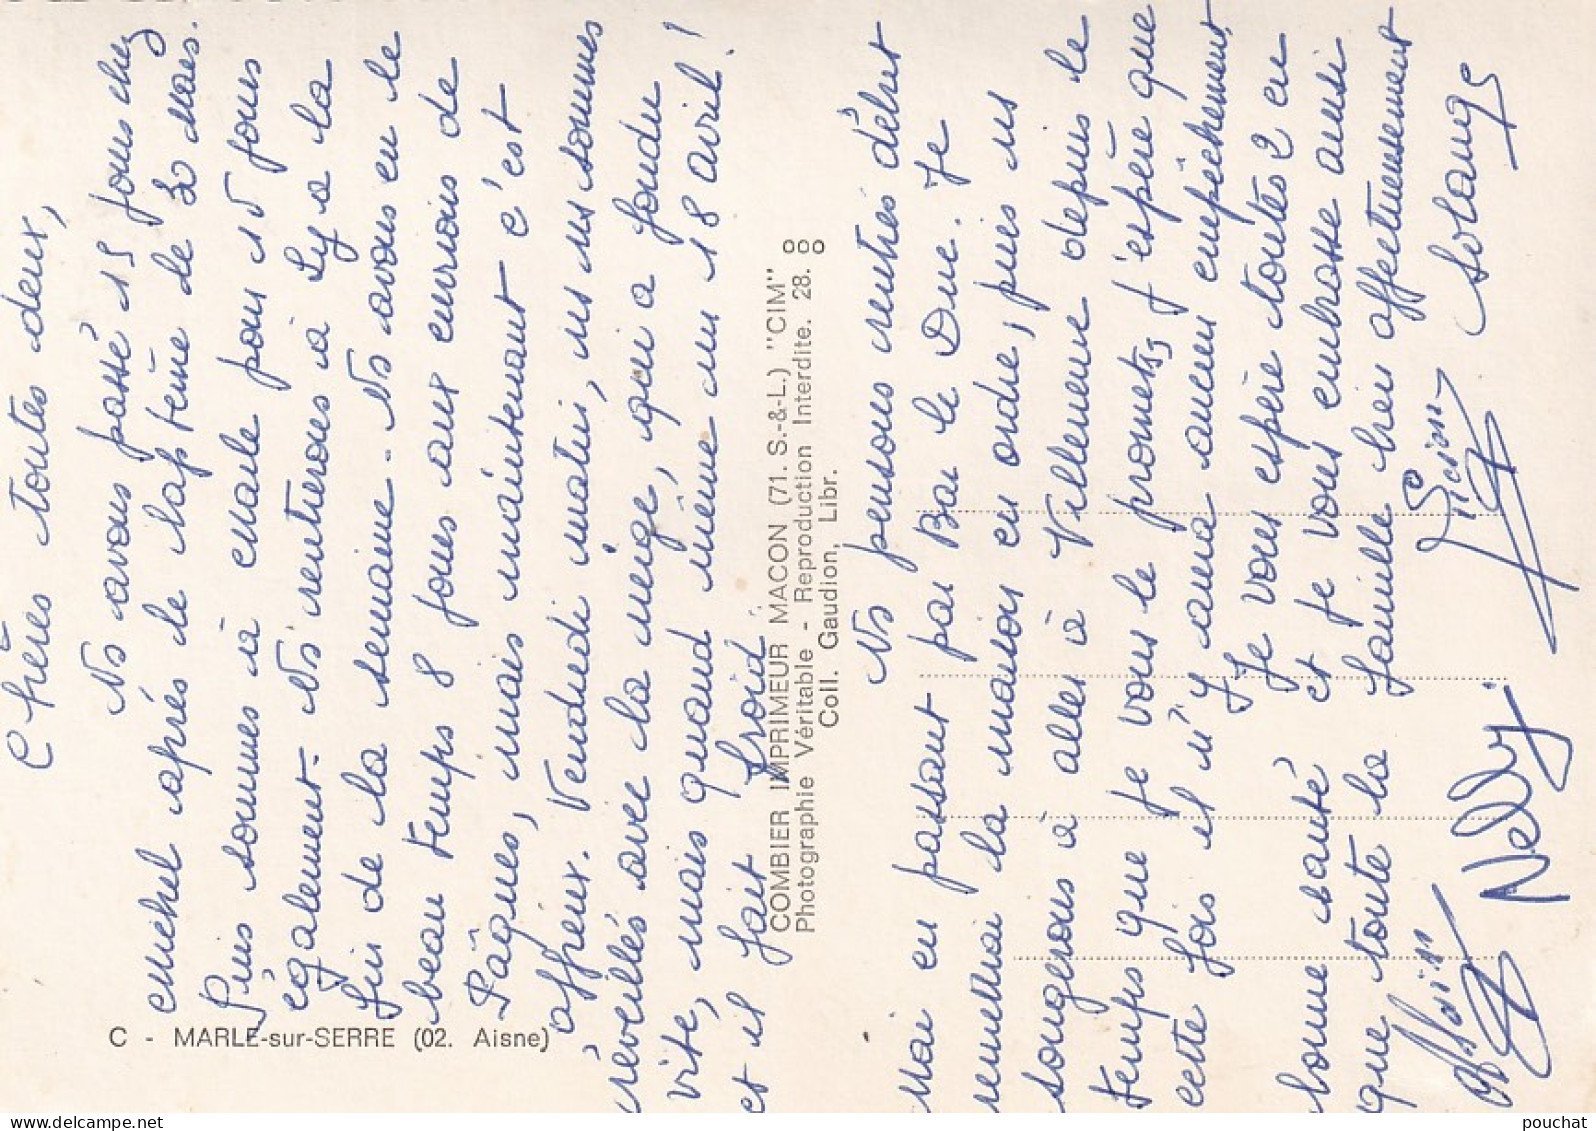 Chères toutes deux,
Ns avons passé 15 jours chez
Michel après le baptême le 30 Mars.
Puis sommes à Marle pour 15 jours
également. Ns rentrerons à Ly a la
fin de la semaine. Ns avons eu le
beau temps 8 jours aux environs de
Pâques, mais maintenant c'est
affreux. Vendredi matin, ns ns sommes
réveillés avec la neige, qui a fondu
vite, mais quand même un 18 avril !
et il fait froid.
Ns pensons rentrés début
Mai en passant par Bar le Duc. Je
remettrai la maison en ordre, puis ns
songerons à aller à Villemene depuis le
temps que je vous le promets, j'espère que
cette fois il n'y aura aucun empêchement.
Je vous espère toutes 2 en
bonne santé et je vous embrasse ainsi
que toute la famille bien affectueusement
Solange
Nelly.
C - MARLE-sur-SERRE (02. Aisne)
COMBIER IMPRIMEUR MACON (71. S.-&-L.) "CIM"
Photographie Véritable - Reproduction Interdite. 28.
Coll. Gaudion, Libr.
delcampe.net
pouchat